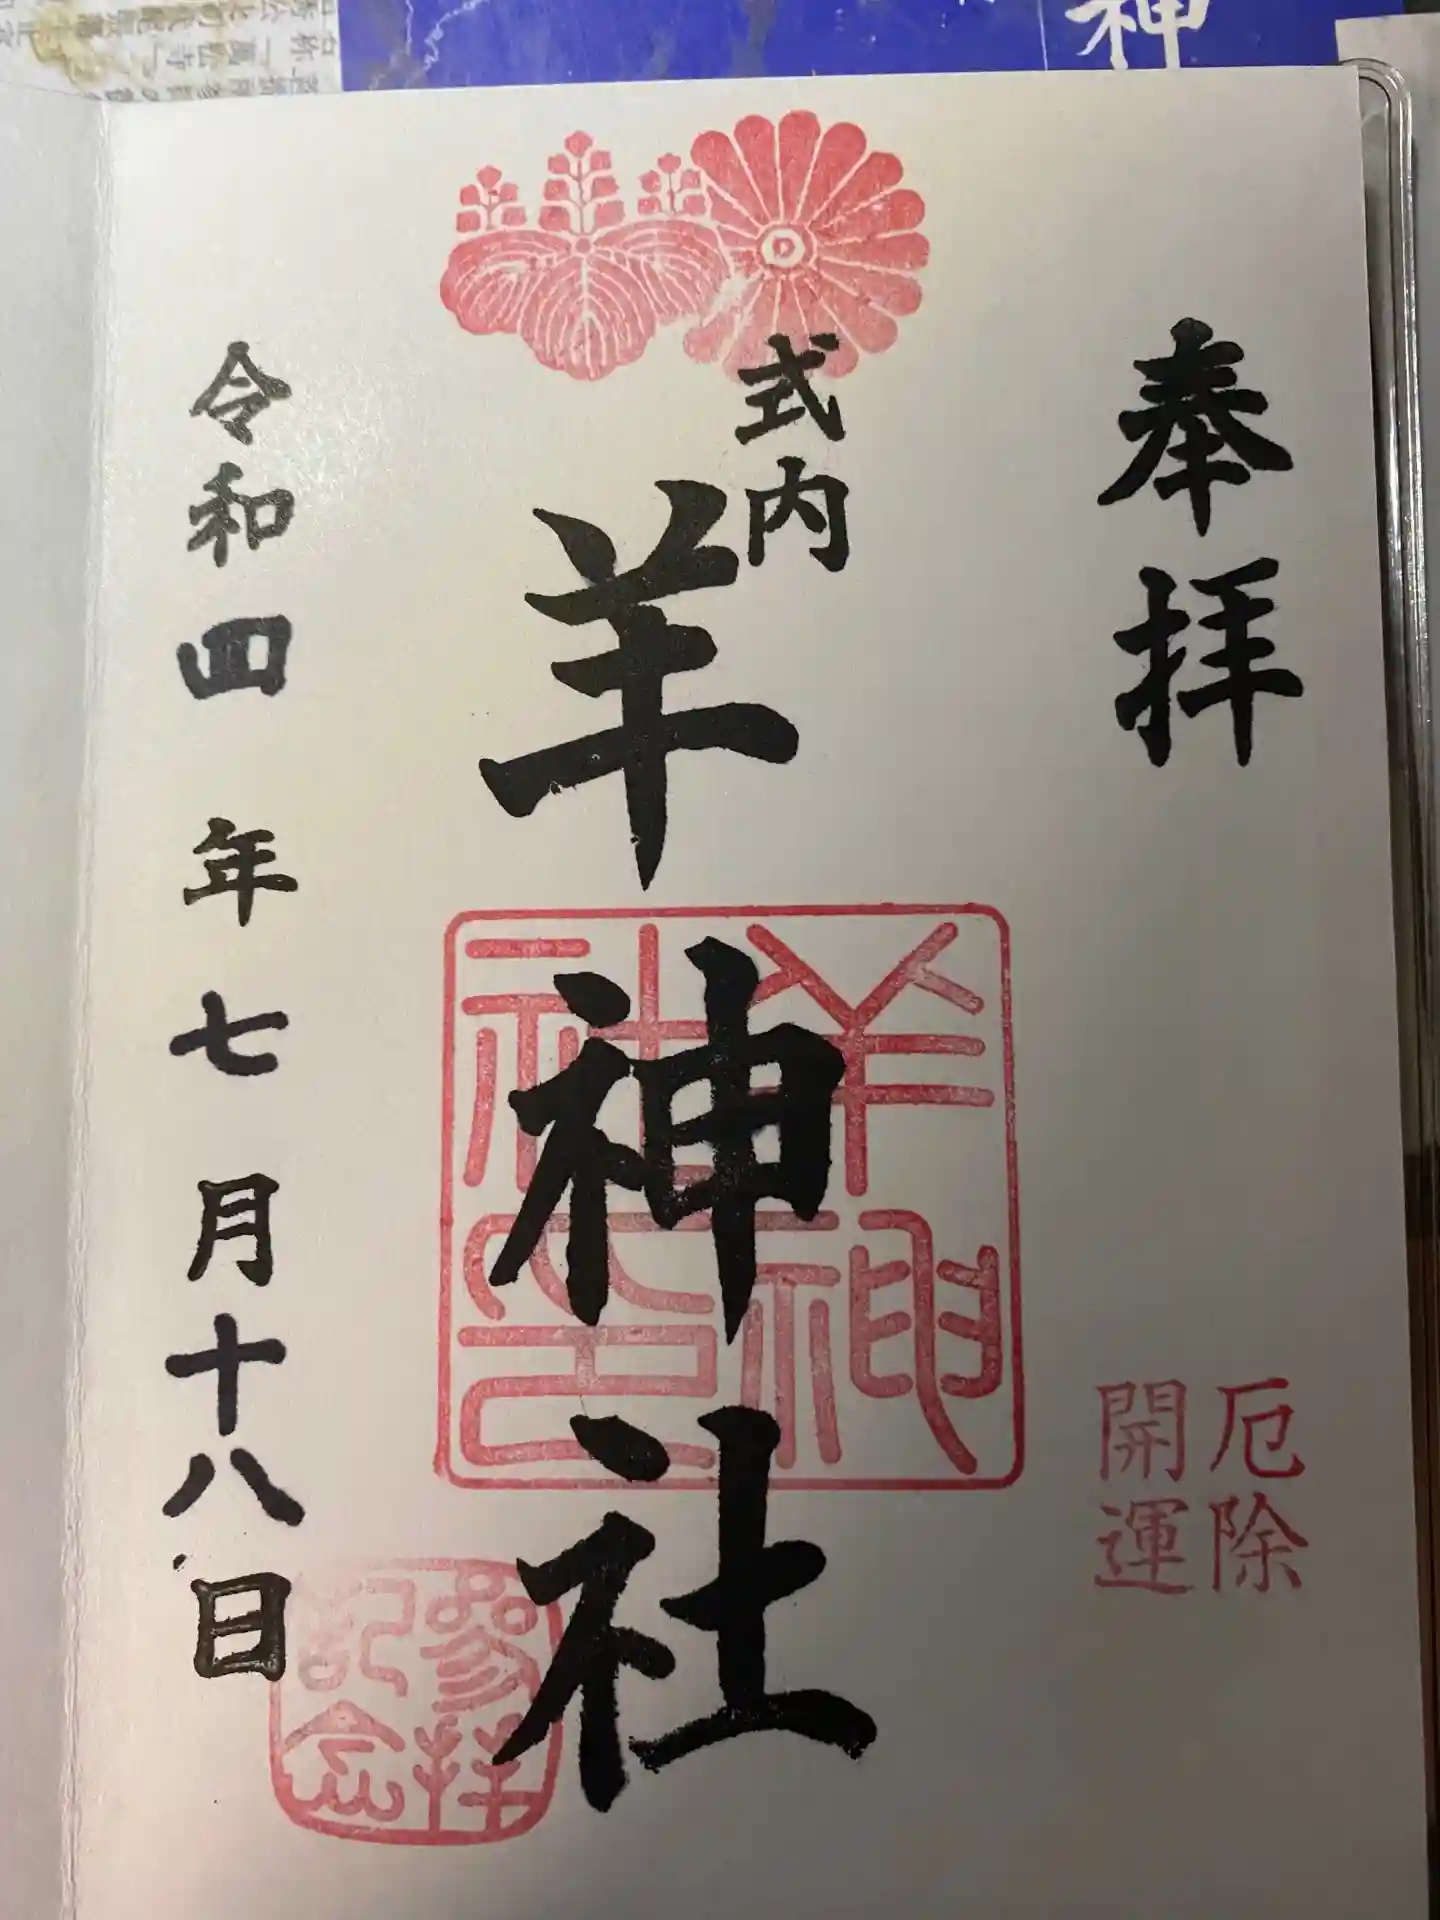 奉拝
厄除
開運
式内
羊神社
羊神
社印
参拝
記念
令和四年七月十八日
神